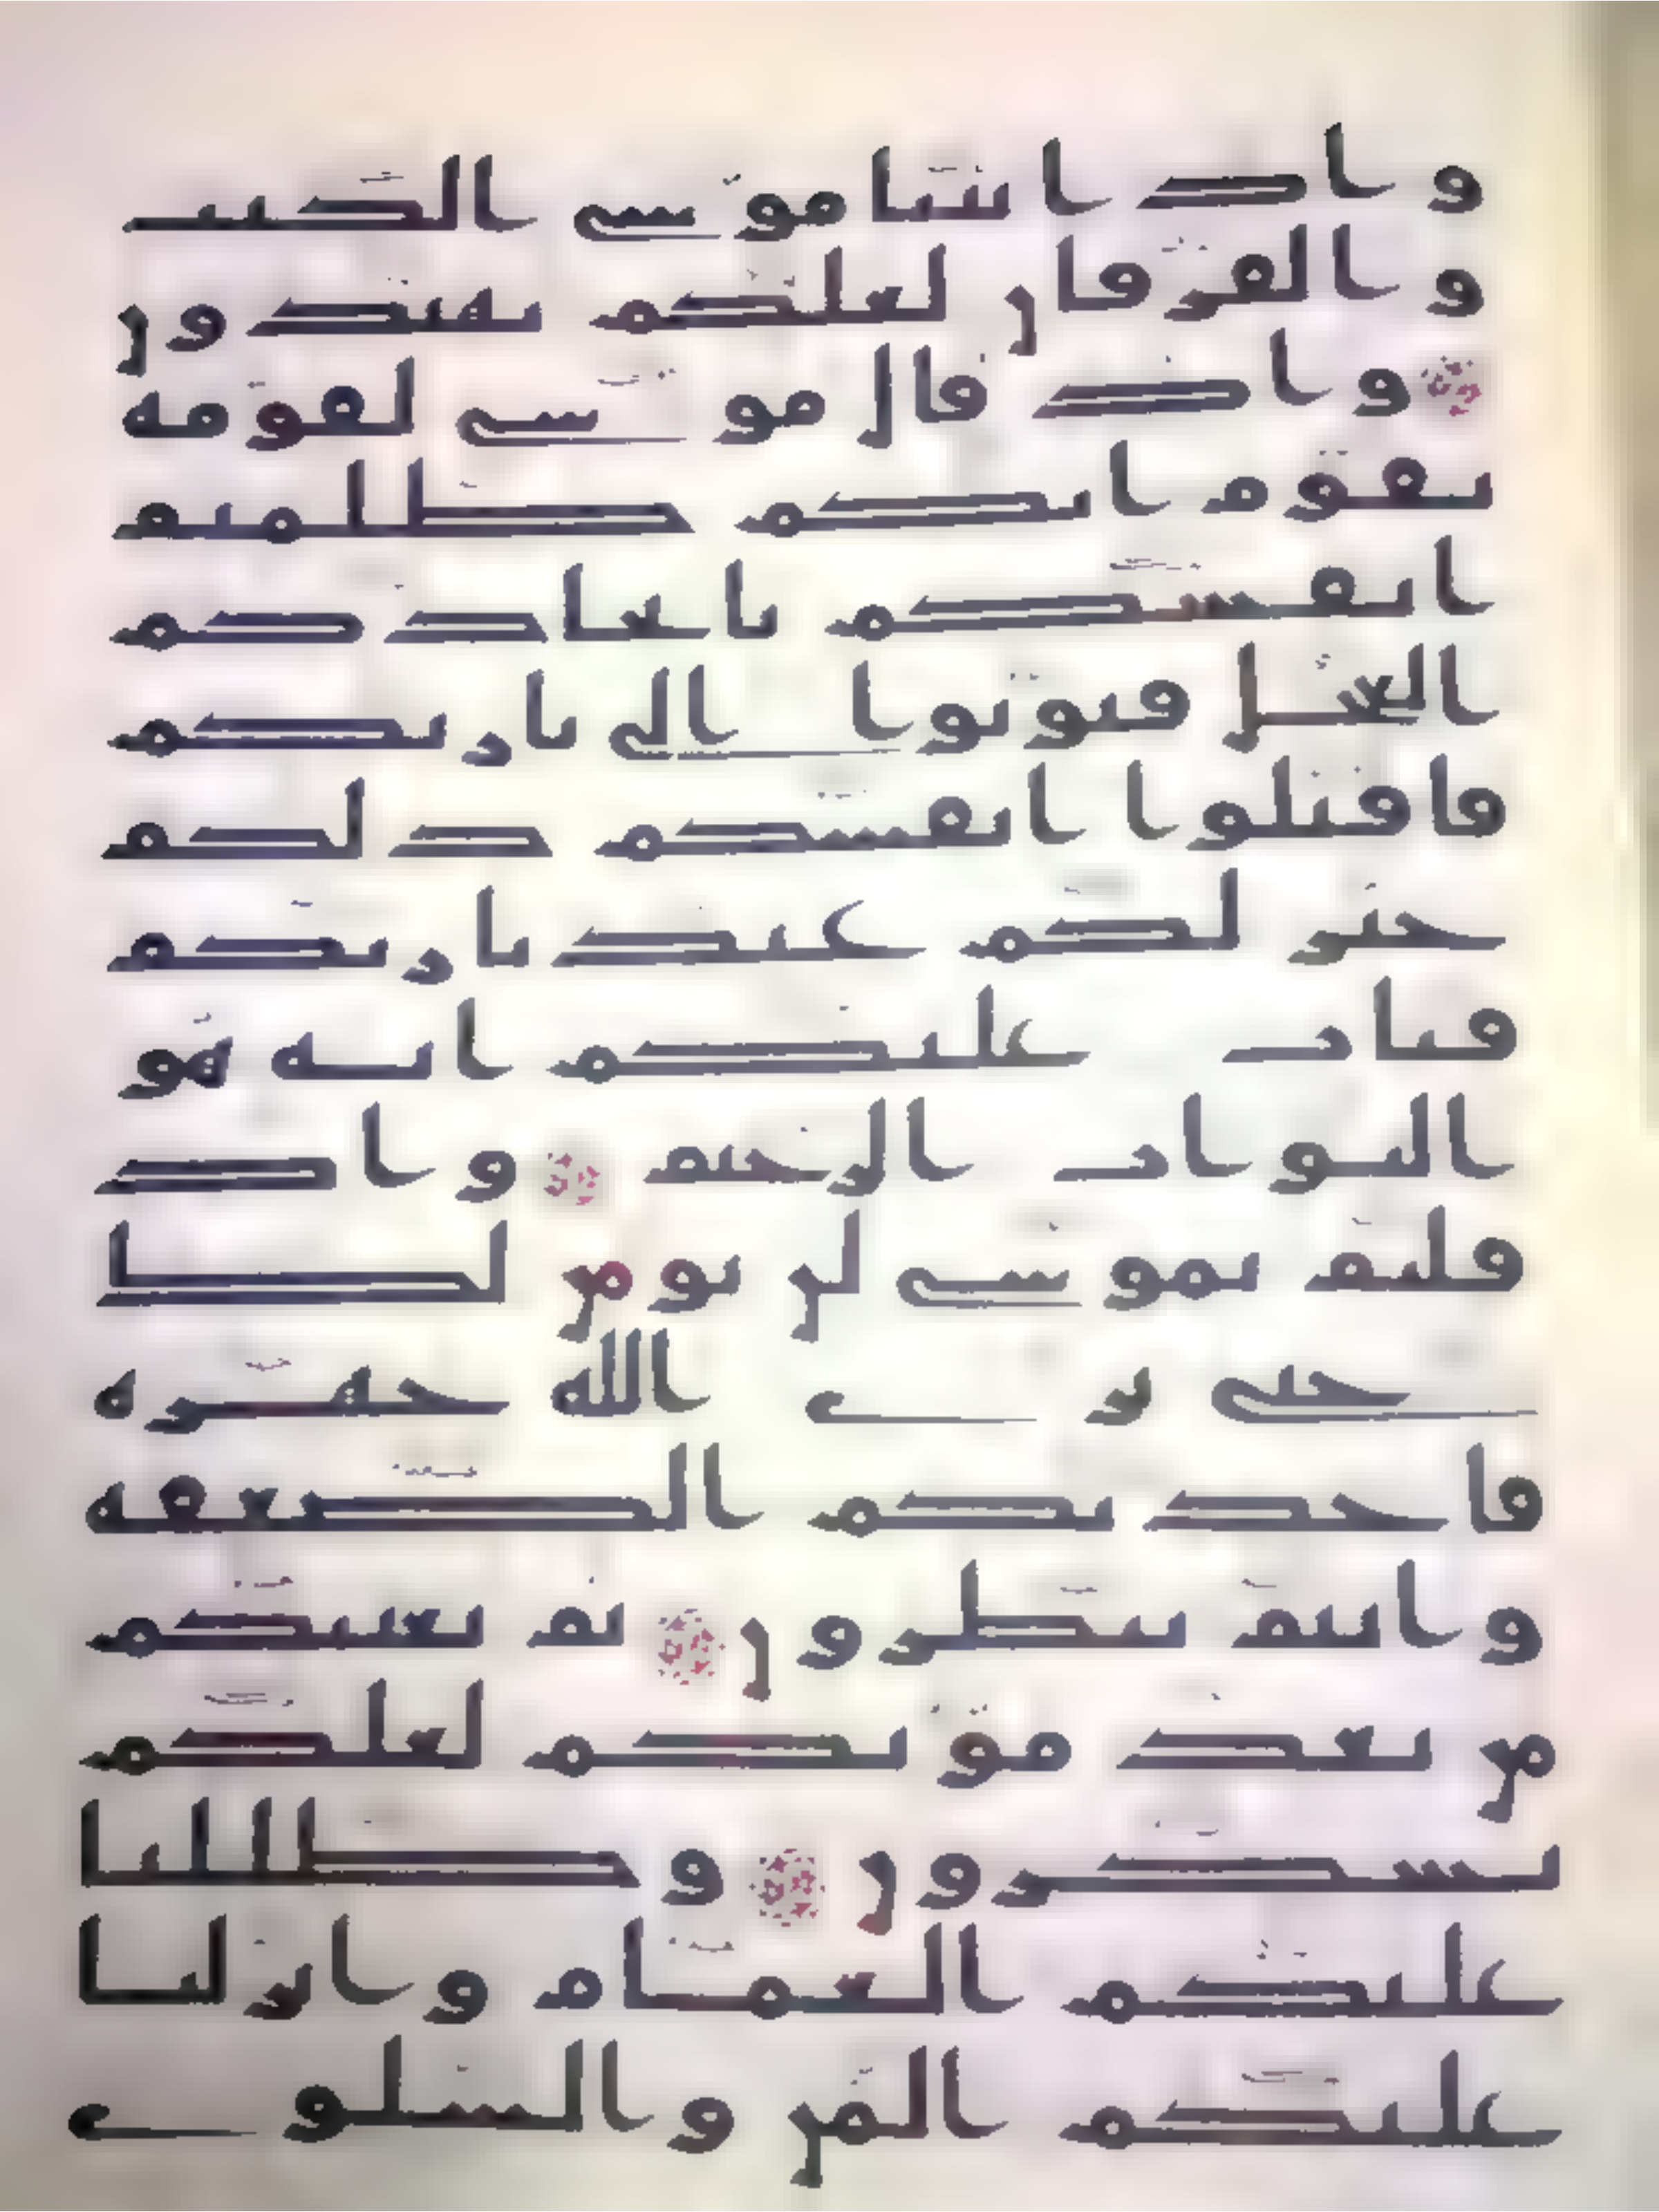 واذ اتينا موسى الكتب
والفرقان لعلكم تهتدون
واذ قال موسى لقومه
يقوم انكم ظلمتم
انفسكم باتخاذكم
العجل فتوبوا الى بارئكم
فاقتلوا انفسكم ذلكم
خير لكم عند بارئكم
فتاب عليكم انه هو
التواب الرحيم واذ
قلتم يموسى لن نؤمن لك
حتى نرى الله جهرة
فاخذتكم الصعقة
وانتم تنظرون ثم بعثنكم
من بعد موتكم لعلكم
تشكرون وظللنا
عليكم الغمام وانزلنا
عليكم المن والسلوى